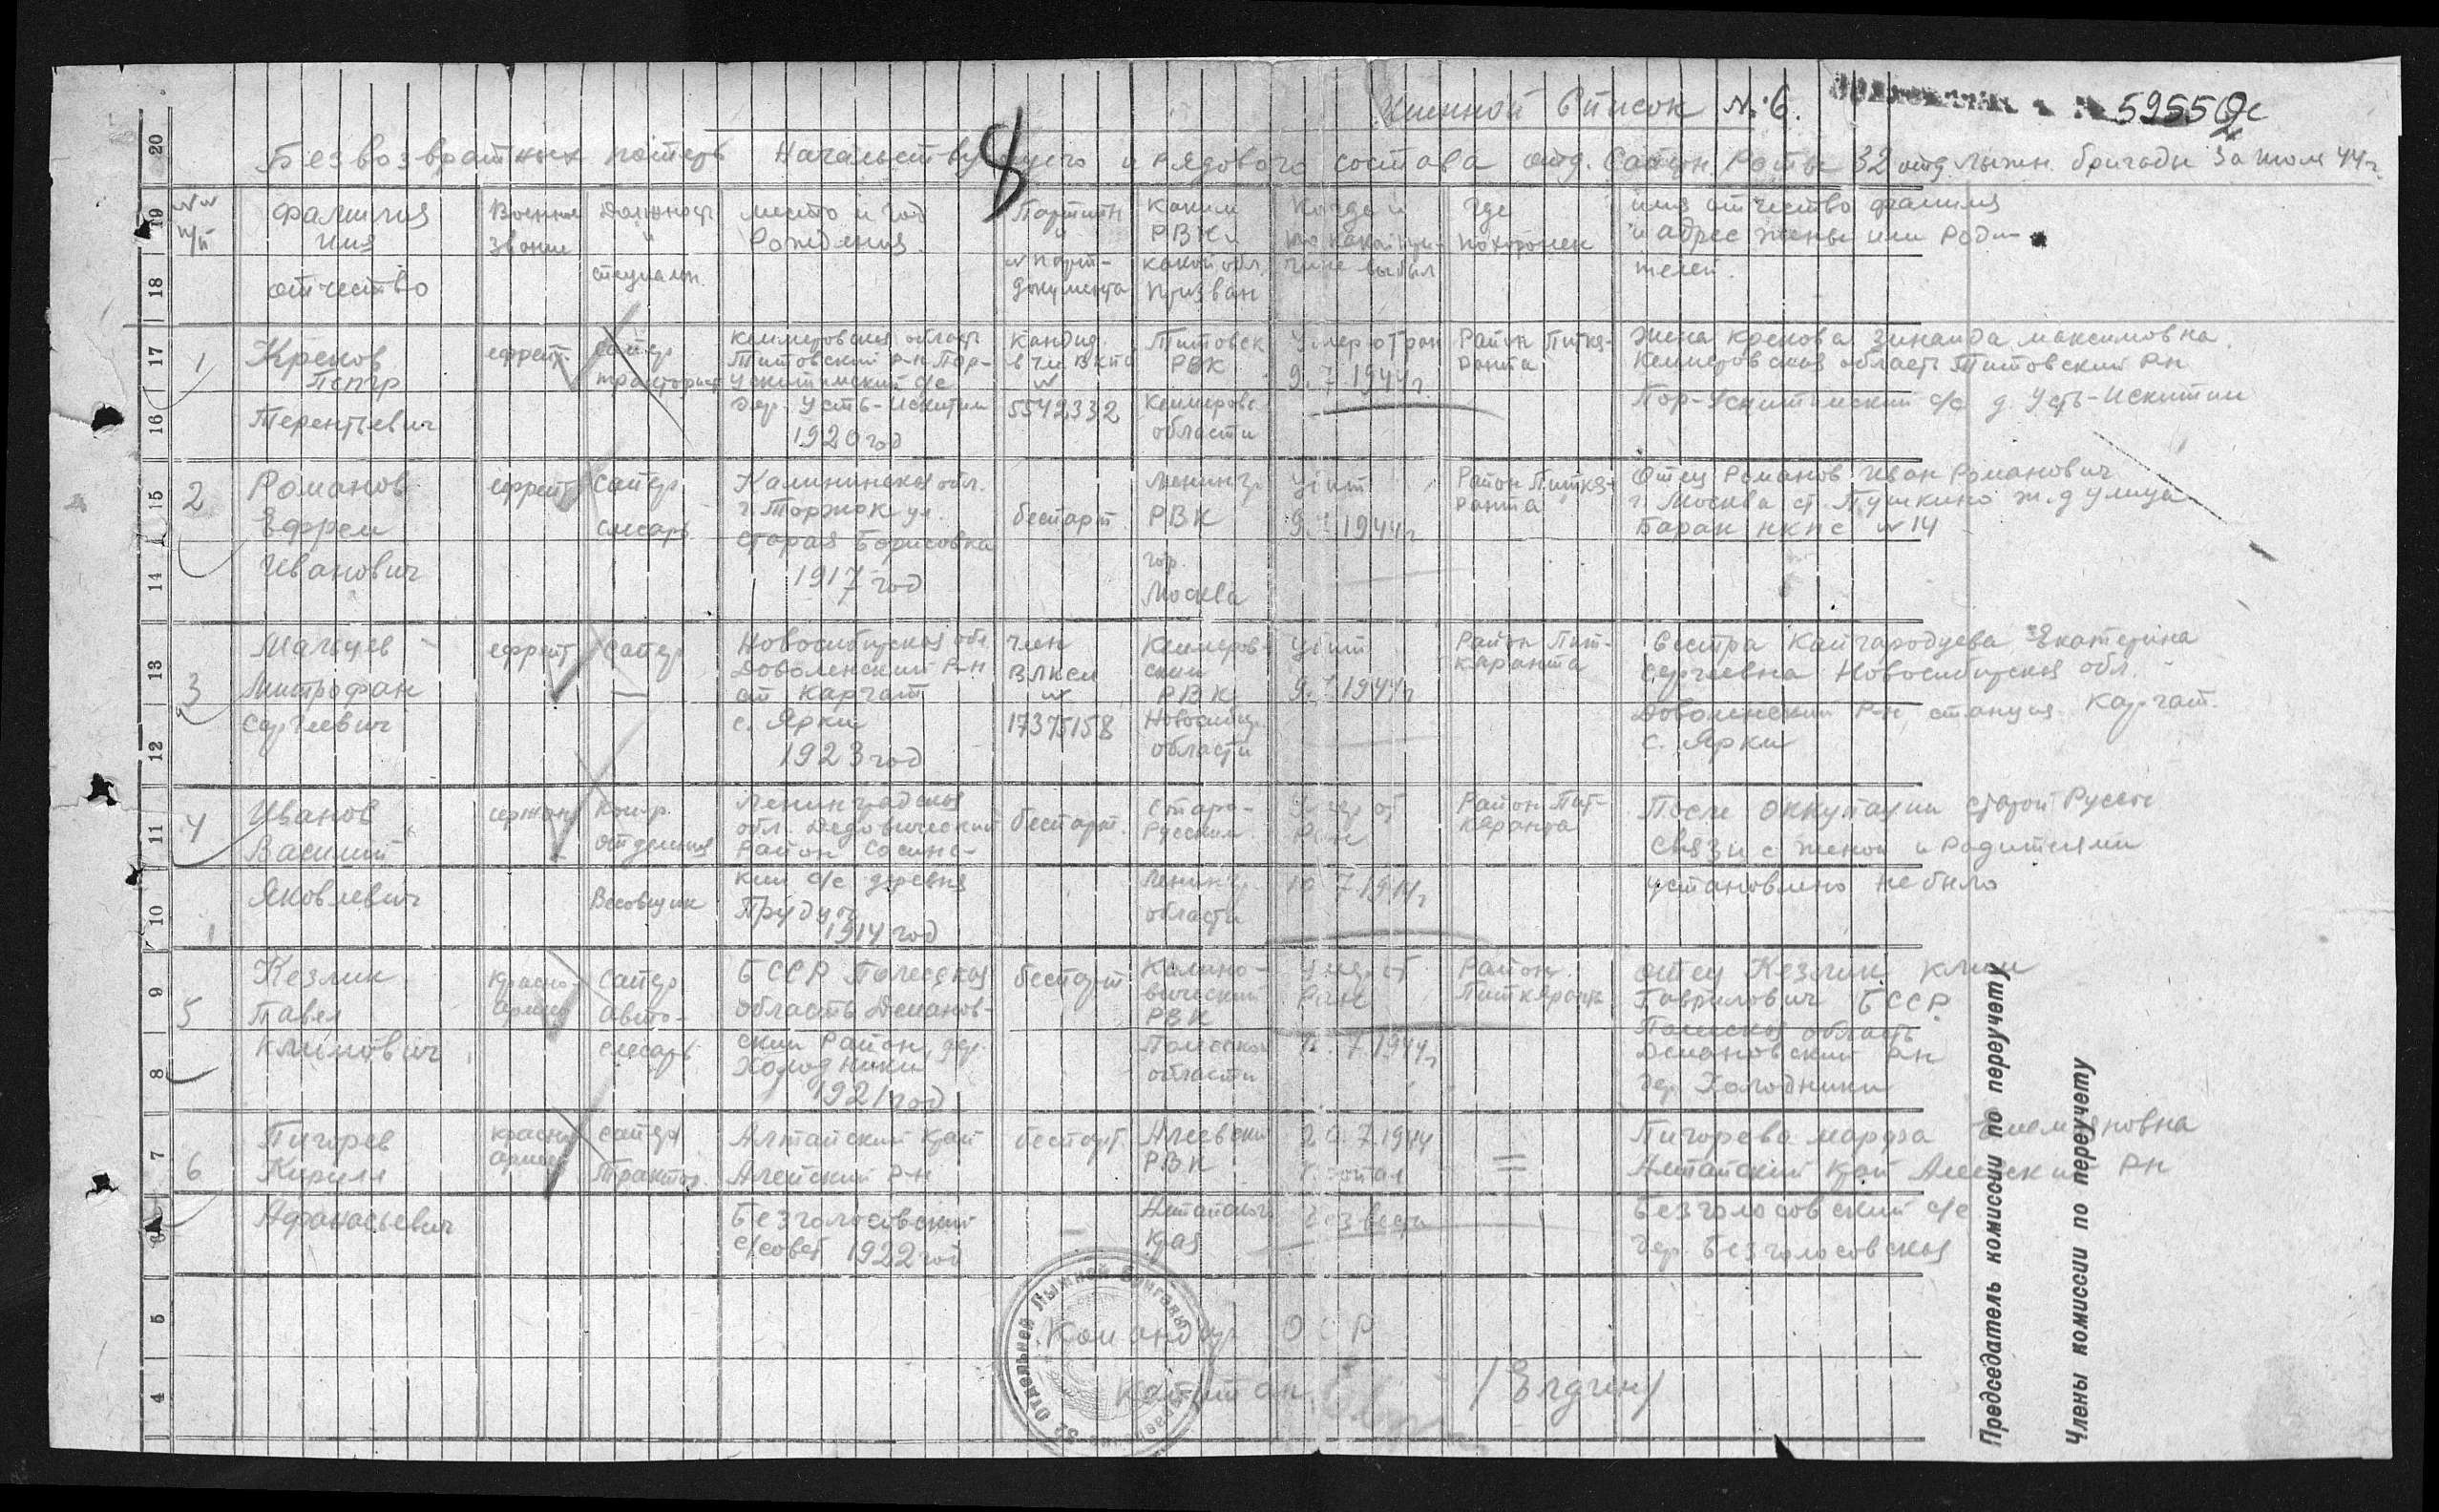 Именной Список №6.
59556с
8
Безвозвратных потерь Начальствующего и Рядового состава отд. Сапер. Роты 32 отд. лыжн. бригады За июль 44г.
№№ п/п
Фамилия имя отчество
Военное звание
Должност и специальн.
место и год Рождения.
Партийн и № парт-документа
Каким РВК и какой обл. призван
Когда и по какой при-чине выбыл
Где похоронен
имя отчество фамилия и адрес жены или Роди-телей.
1
Креков Петр Терентьевич
ефрейт.
сапер тракторист
Кемеровская область Титовский р-н Пор-Искитимский с/с дер. Усть-Искитим 1920 год
Кандид. в чл. ВКПб № 5542332
Титовск РВК Кемеровс. области
Умер от ран 9.7.1944г.
Район Питкя-ранта
Жена Крекова Зинаида Максимовна.
Кемеровская область Титовский Р-н
Пор-Искитимский с/с д. Усть-Искитим
2
Романов Ефрем Иванович
ефрейт
сапер слесарь
Калининская обл. г. Торжок ул. старая Борисовка 1917 год
беспарт.
Ленингр. РВК гор. Москва
Убит 9.7.1944г
Район Питкя-ранта
Отец Романов Иван Романович
г. Москва ст. Пушкино ж.д улица
Барак НКПС №14
3
Мальцев Митрофан Сергеевич
ефрейт
Сапер —
Новосибирская обл Доволенский Р-н ст Каргат с. Ярки 1923 год
член ВЛКСМ № 17375158
Кемеров-ским РВК Новосибир. области
Убит 9.7.1944г
Район Пит-каранта
Сестра Кайгородцева Екатерина
Сергеевна Новосибирская обл.
Доволенский Р-н станция Каргат.
с. Ярки
4
Иванов Василий Яковлевич
сержант
Ком-р. отделения Весовщик
Ленинградская обл. Дедовический район Сосонс-кий с/с деревня
1914 год
беспарт.
Старо-Русским Ленингр. области
Умер от Ран 10 7.1944г
Район Пит-каранта
После оккупации старой Руссы
связи с женой и Родителями
установлено не было
5
Кезлик Павел Климович
Красно-армеец
Сапер Авто-слесарь
БССР Полесская область Доманов-ский Район, дер. Холодники 1921 год
беспарт
РВК Полесской области
Умер от Ран 7.1944г
Район Питкяранта
отец Кезлик Клим
Гаврилович БССР
Полесская область
Домановский р-н
дер Холодники
6
Пигорев Кирилл Афанасьевич
красно армеец
сапер Трактор.
Алтайский край Алейский р-н Безголосовский с/совет 1922 год
беспарт.
Алейский РВК Алтайского края
20.7.1944 пропал без вести
=
Пигорева Марфа Емельяновна
Алтайский край Алейский Р-н
Безголосовский с/с
дер. Безголосовская
Командир ОСР
Капитан /Елдин/
32 Отдельной Лыжной Бригады
Председатель комиссии по переучету
Члены комиссии по переучету
20
19
18
17
16
15
14
13
12
11
10
9
8
7
6
5
4